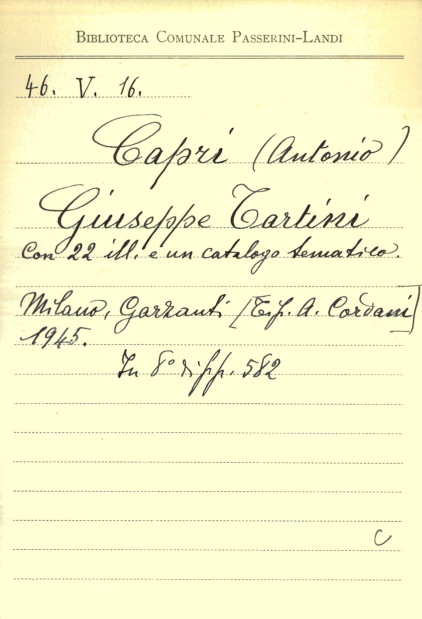 BIBLIOTECA COMUNALE PASSERINI-LANDI
46. V. 16.
Capri (Antonio)
Giuseppe Tartini
Con 22 ill. e un catalogo tematico.
Milano, Garzanti [Tip. A. Cordani]
1945.
In 8° di pp. 582
C